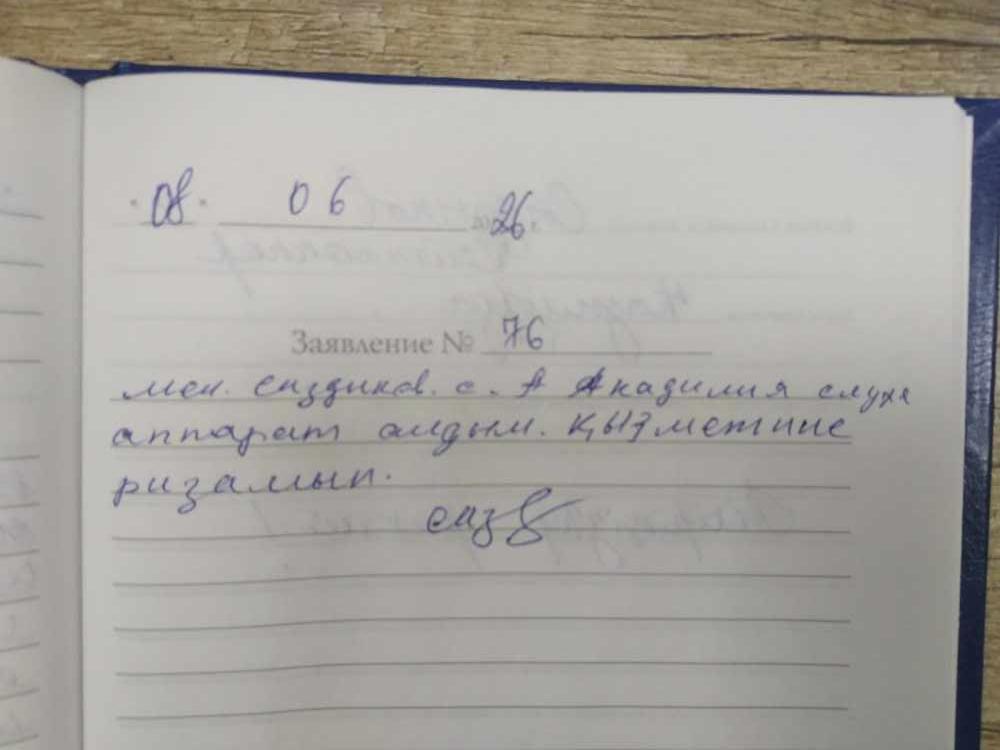 "08" 06 2026.
Заявление № 76
мен. сиздиков. с. А Академия слуха
аппарат алдым. қызметине
ризамын.
сизд